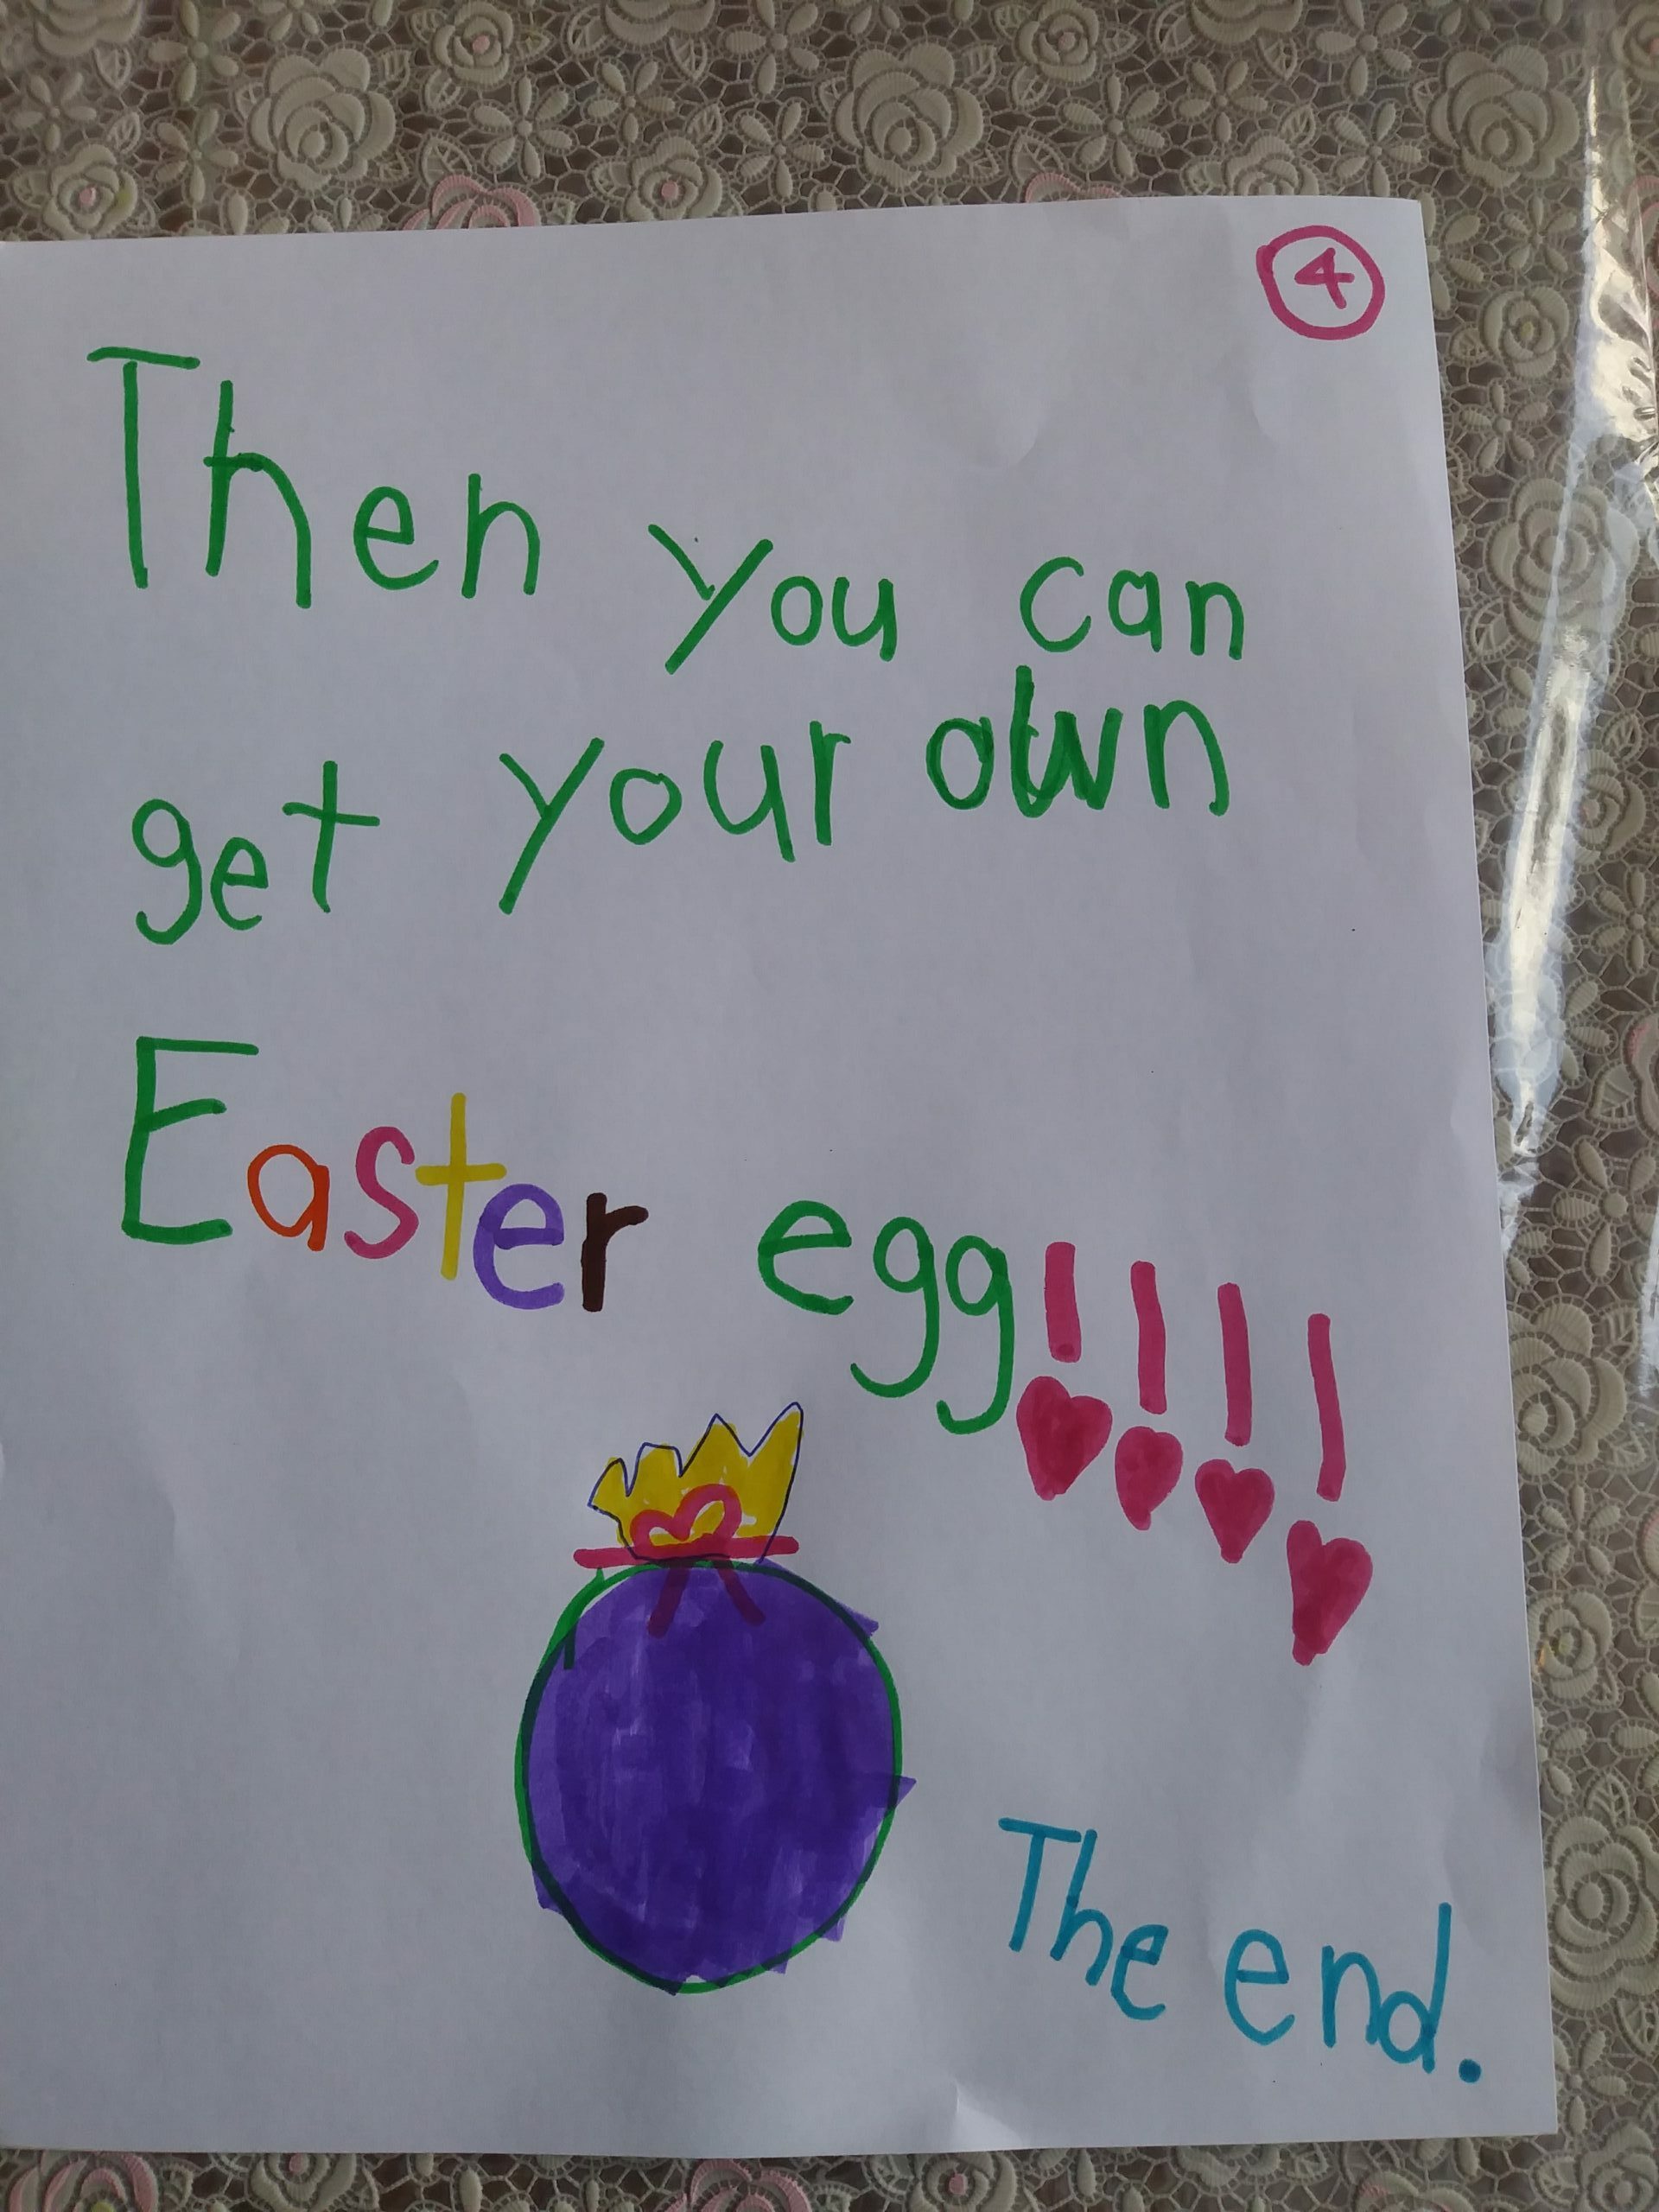 4
Then you can
get your own
Easter egg!!!!
The end.